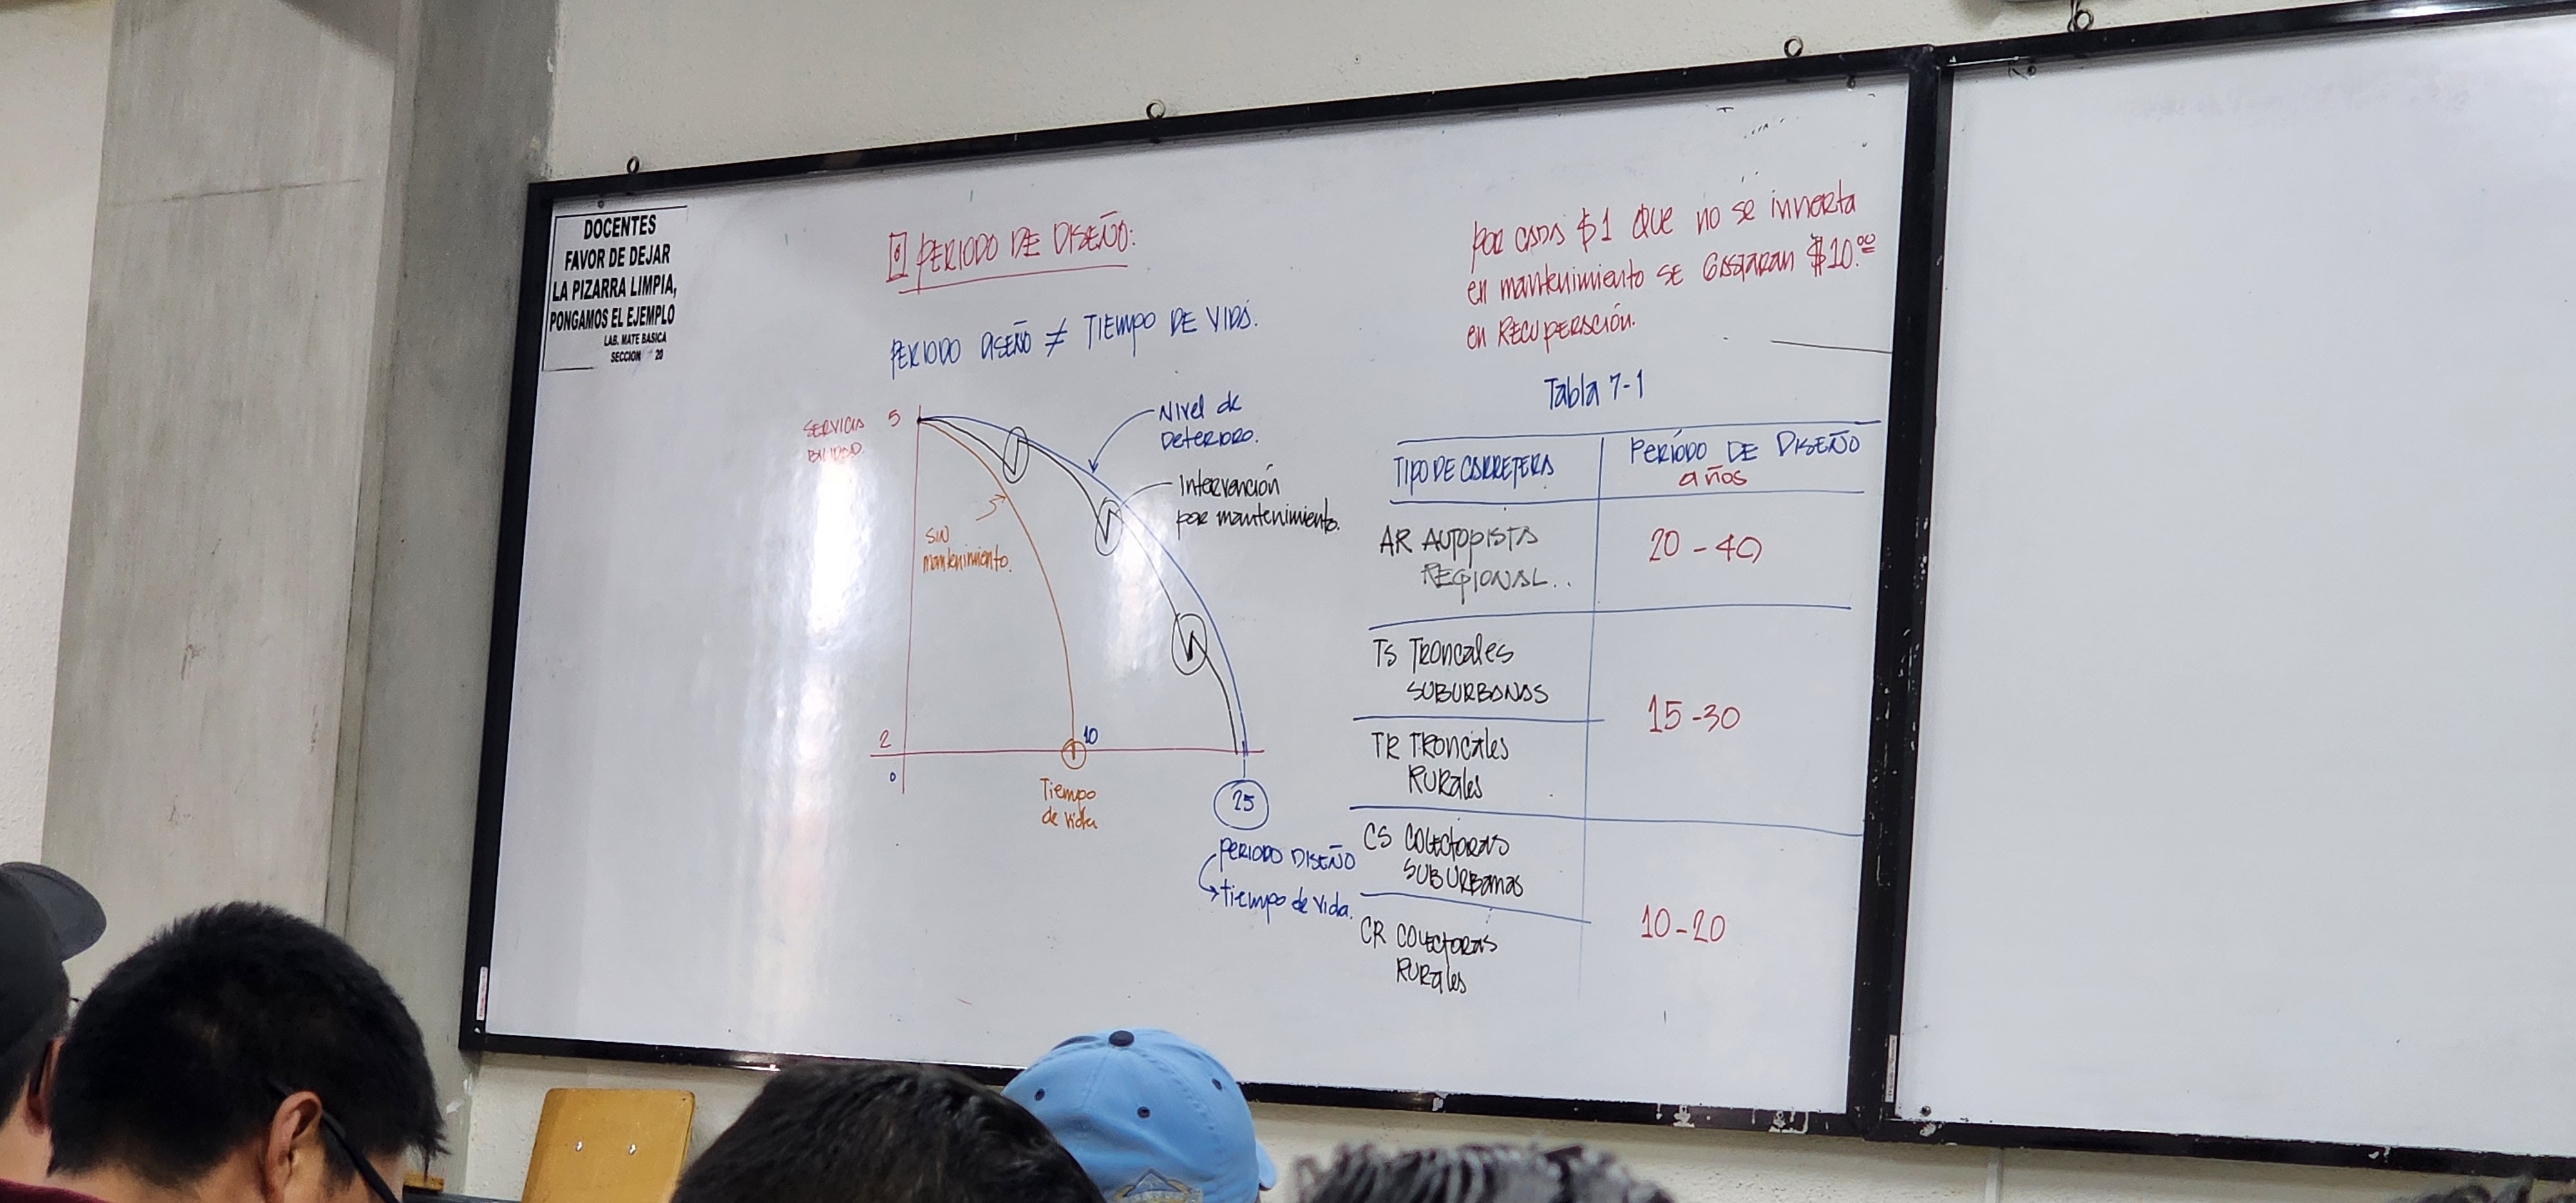 DOCENTES
FAVOR DE DEJAR
LA PIZARRA LIMPIA,
PONGAMOS EL EJEMPLO
LAB. MATE BASICA
SECCION 20
PERIODO DE DISEÑO:
PERIODO DISEÑO ≠ TIEMPO DE VIDA.
SERVICIA
BILIDAD
5
Nivel de
DETERIORO.
Intervención
por mantenimiento.
SIN
mantenimiento.
2
0
10
Tiempo
de vida
25
PERIODO DISEÑO
tiempo de vida.
POR CADA $1 QUE no se invierta
en mantenimiento SE GASTARAN $10.00
en RECUPERACIÓN.
Tabla 7-1
TIPO DE CARRETERA
PERÍODO DE DISEÑO
años
AR AUTOPISTA
REGIONAL..
20 - 40
TS TRONCALES
SUBURBANAS
15 - 30
TR TRONCALES
RURALES
CS COLECTORAS
SUBURBANAS
10 - 20
CR COLECTORAS
RURALES